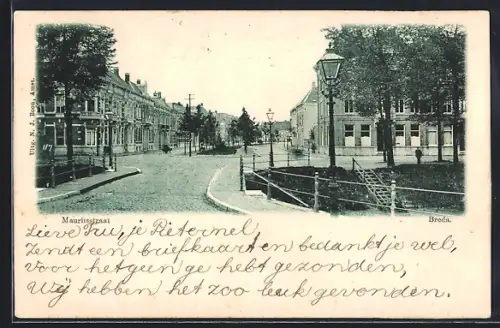 Uitg. N. J. Boon, Amst.
Mauritsstraat
Breda.
Lieve Truu, je Pieternel,
Zendt een briefkaart en bedankt je wel,
Voor hetgeen ge hebt gezonden,
Wij hebben het zoo leuk gevonden.